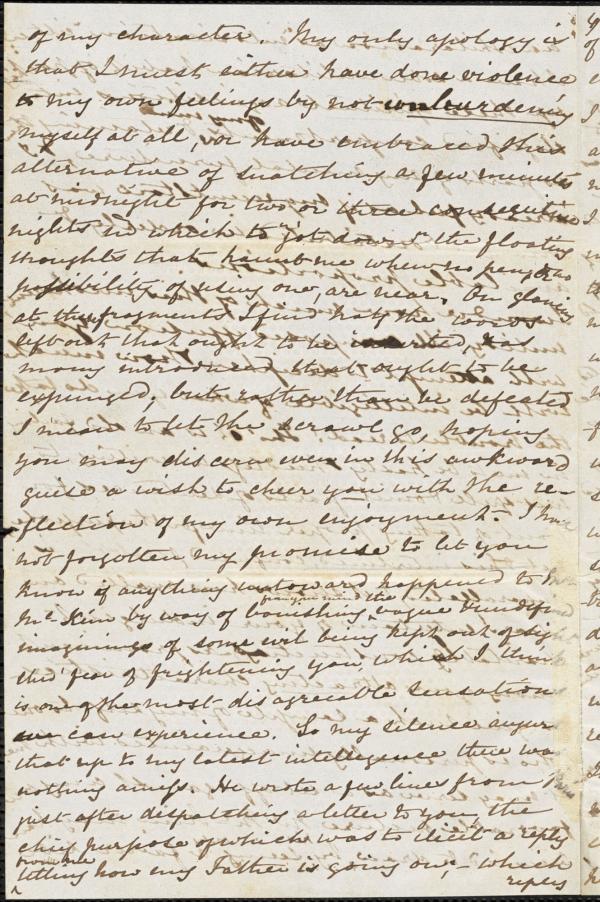 of my character. My only apology is
that I must either have done violence
to my own feelings by not unburdening
myself at all, or have embraced this
alternative of snatching a few minutes
at midnight for two or three consecutive
nights in which to jot down the floating
thoughts that haunt me when no pen, or
possibility of using one, are near. On glancing
at the fragments I find half the words
left out that ought to be inserted, & as
many introduced that ought to be
expunged; but rather than be defeated
I mean to let the scrawl go, hoping
you may discern even in this awkward
guise a wish to cheer you with the re-
flection of my own enjoyment. I have
not forgotten my promise to let you
know if anything untoward happened to
from your mind the
Mr. Kim by way of banishing vague
imaginings of some evil being kept out of sight
thro' fear of frightening you, which I think
is one of the most disagreeable sensations
can experience. So my silence augur
that up to my latest intelligence there was
nothing amiss. He wrote a few lines from
just after despatching a letter to you, the
chief purpose of which was to elicit a reply
from me
telling how my Father is going on; – which
reply